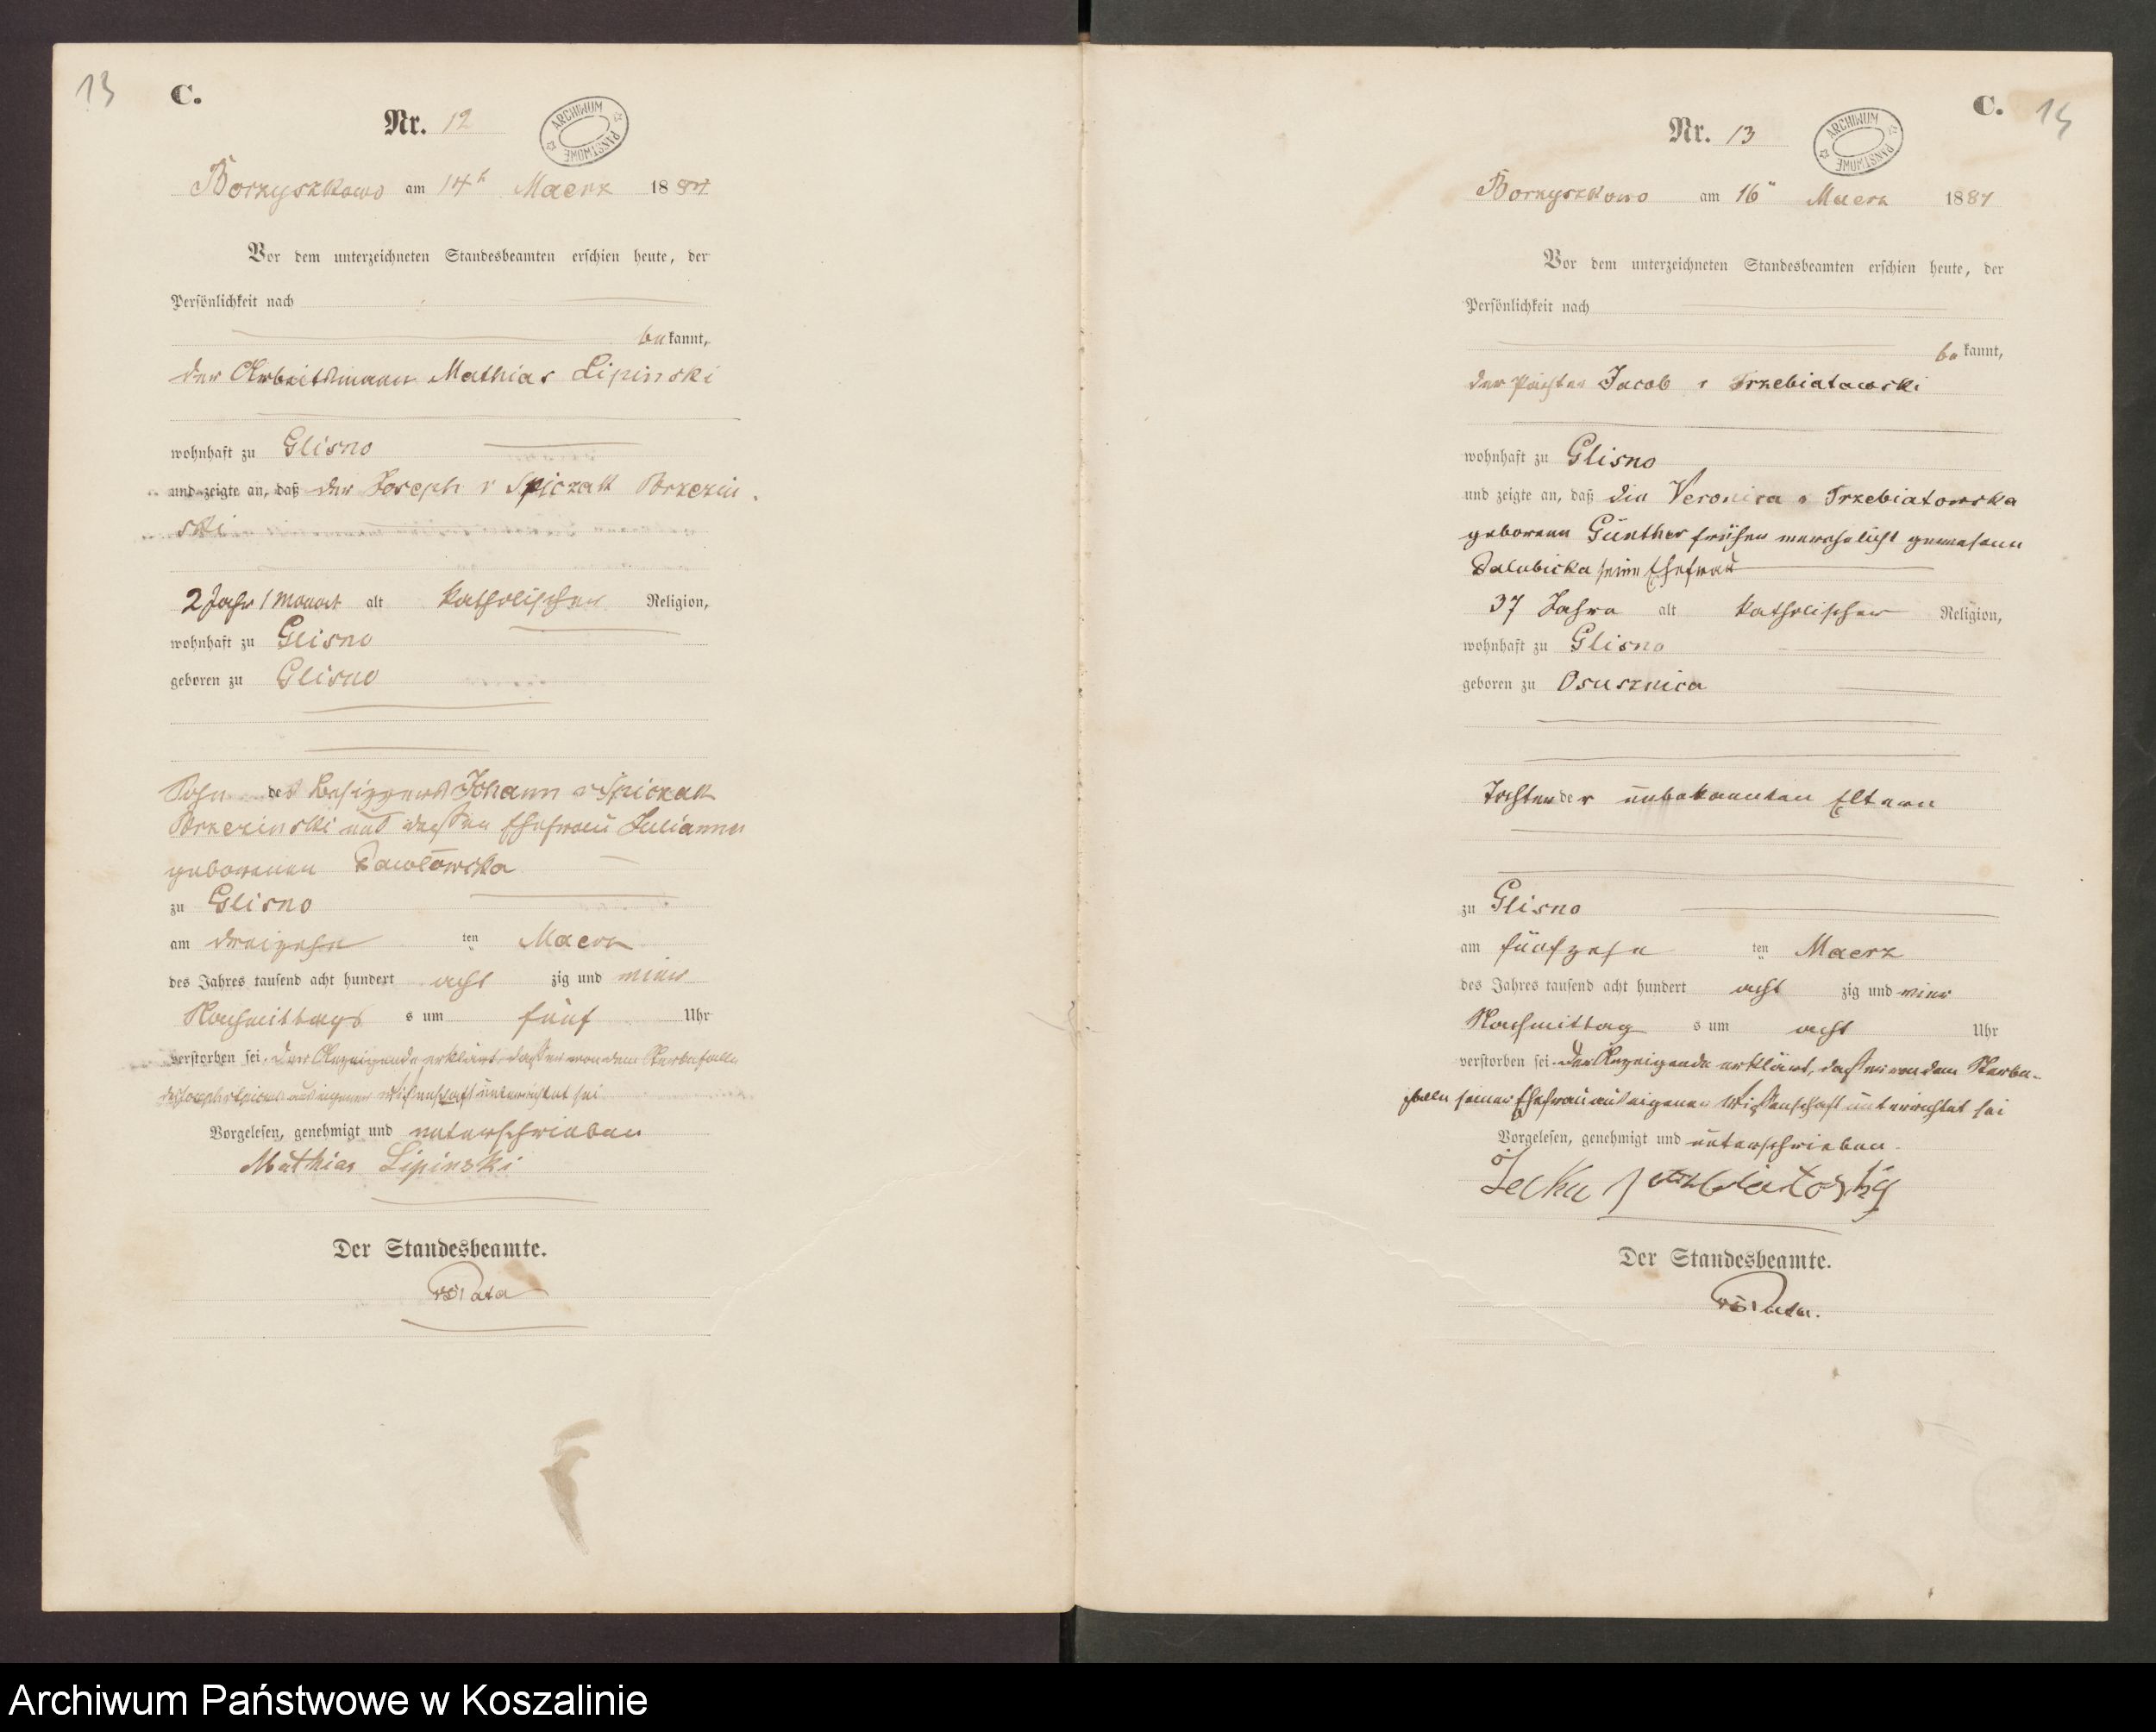 13
C.
Nr. 12
ARCHIWUM PAŃSTWOWE
Borzyszkowo am 14ⁿ Maerz 1884
Vor dem unterzeichneten Standesbeamten erschien heute, der
Persönlichkeit nach
bekannt,
der Arbeitsmann Mathias Lipinski
wohnhaft zu Glisno
und zeigte an, daß der Joseph v Spiczak Brzezin
ski
2 Jahr 1 Monat alt katholischer Religion,
wohnhaft zu Glisno
geboren zu Glisno
Sohn des Besitzers Johann v Spiczak
Brzezinski und dessen Ehefrau Julianna
geborenen Pawlowska
zu Glisno
am dreizehn ten Maerz
des Jahres tausend acht hundert acht zig und vier
Nachmittags s um fünf Uhr
verstorben sei. Der Anzeigende erklärt, daß er von dem Sterbefalle
des Joseph v Spiczak aus eigener Wissenschaft unterrichtet sei
Vorgelesen, genehmigt und unterschrieben
Mathias Lipinski
Der Standesbeamte.
C.
14
Nr. 13
ARCHIWUM PAŃSTWOWE
Borzyszkowo am 16ⁿ Maerz 1884
Vor dem unterzeichneten Standesbeamten erschien heute, der
Persönlichkeit nach
bekannt,
der Pächter Jacob v Trzebiatowski
wohnhaft zu Glisno
und zeigte an, daß die Veronica v Trzebiatowska
geborene Günther früher verehelicht gewesene
seine Ehefrau
37 Jahre alt katholischer Religion,
wohnhaft zu Glisno
geboren zu Osusznica
Tochter der unbekannten Eltern
zu Glisno
am fünfzehn ten Maerz
des Jahres tausend acht hundert acht zig und vier
Nachmittag s um acht Uhr
verstorben sei. Der Anzeigende erklärt, daß er von dem Sterbe-
falle seiner Ehefrau aus eigener Wissenschaft unterrichtet sei
Vorgelesen, genehmigt und unterschrieben.
Der Standesbeamte.
Archiwum Państwowe w Koszalinie